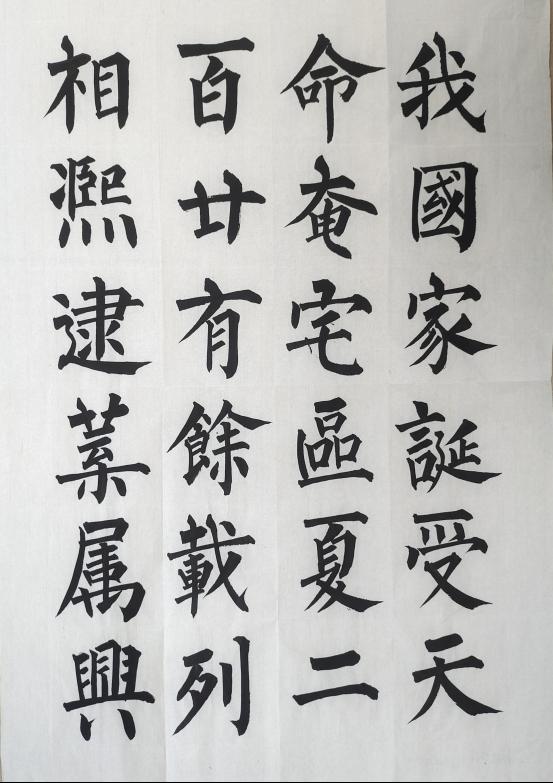 我國家誕受天
命奄宅區夏二
百廿有餘載列
相凞逮葉属興